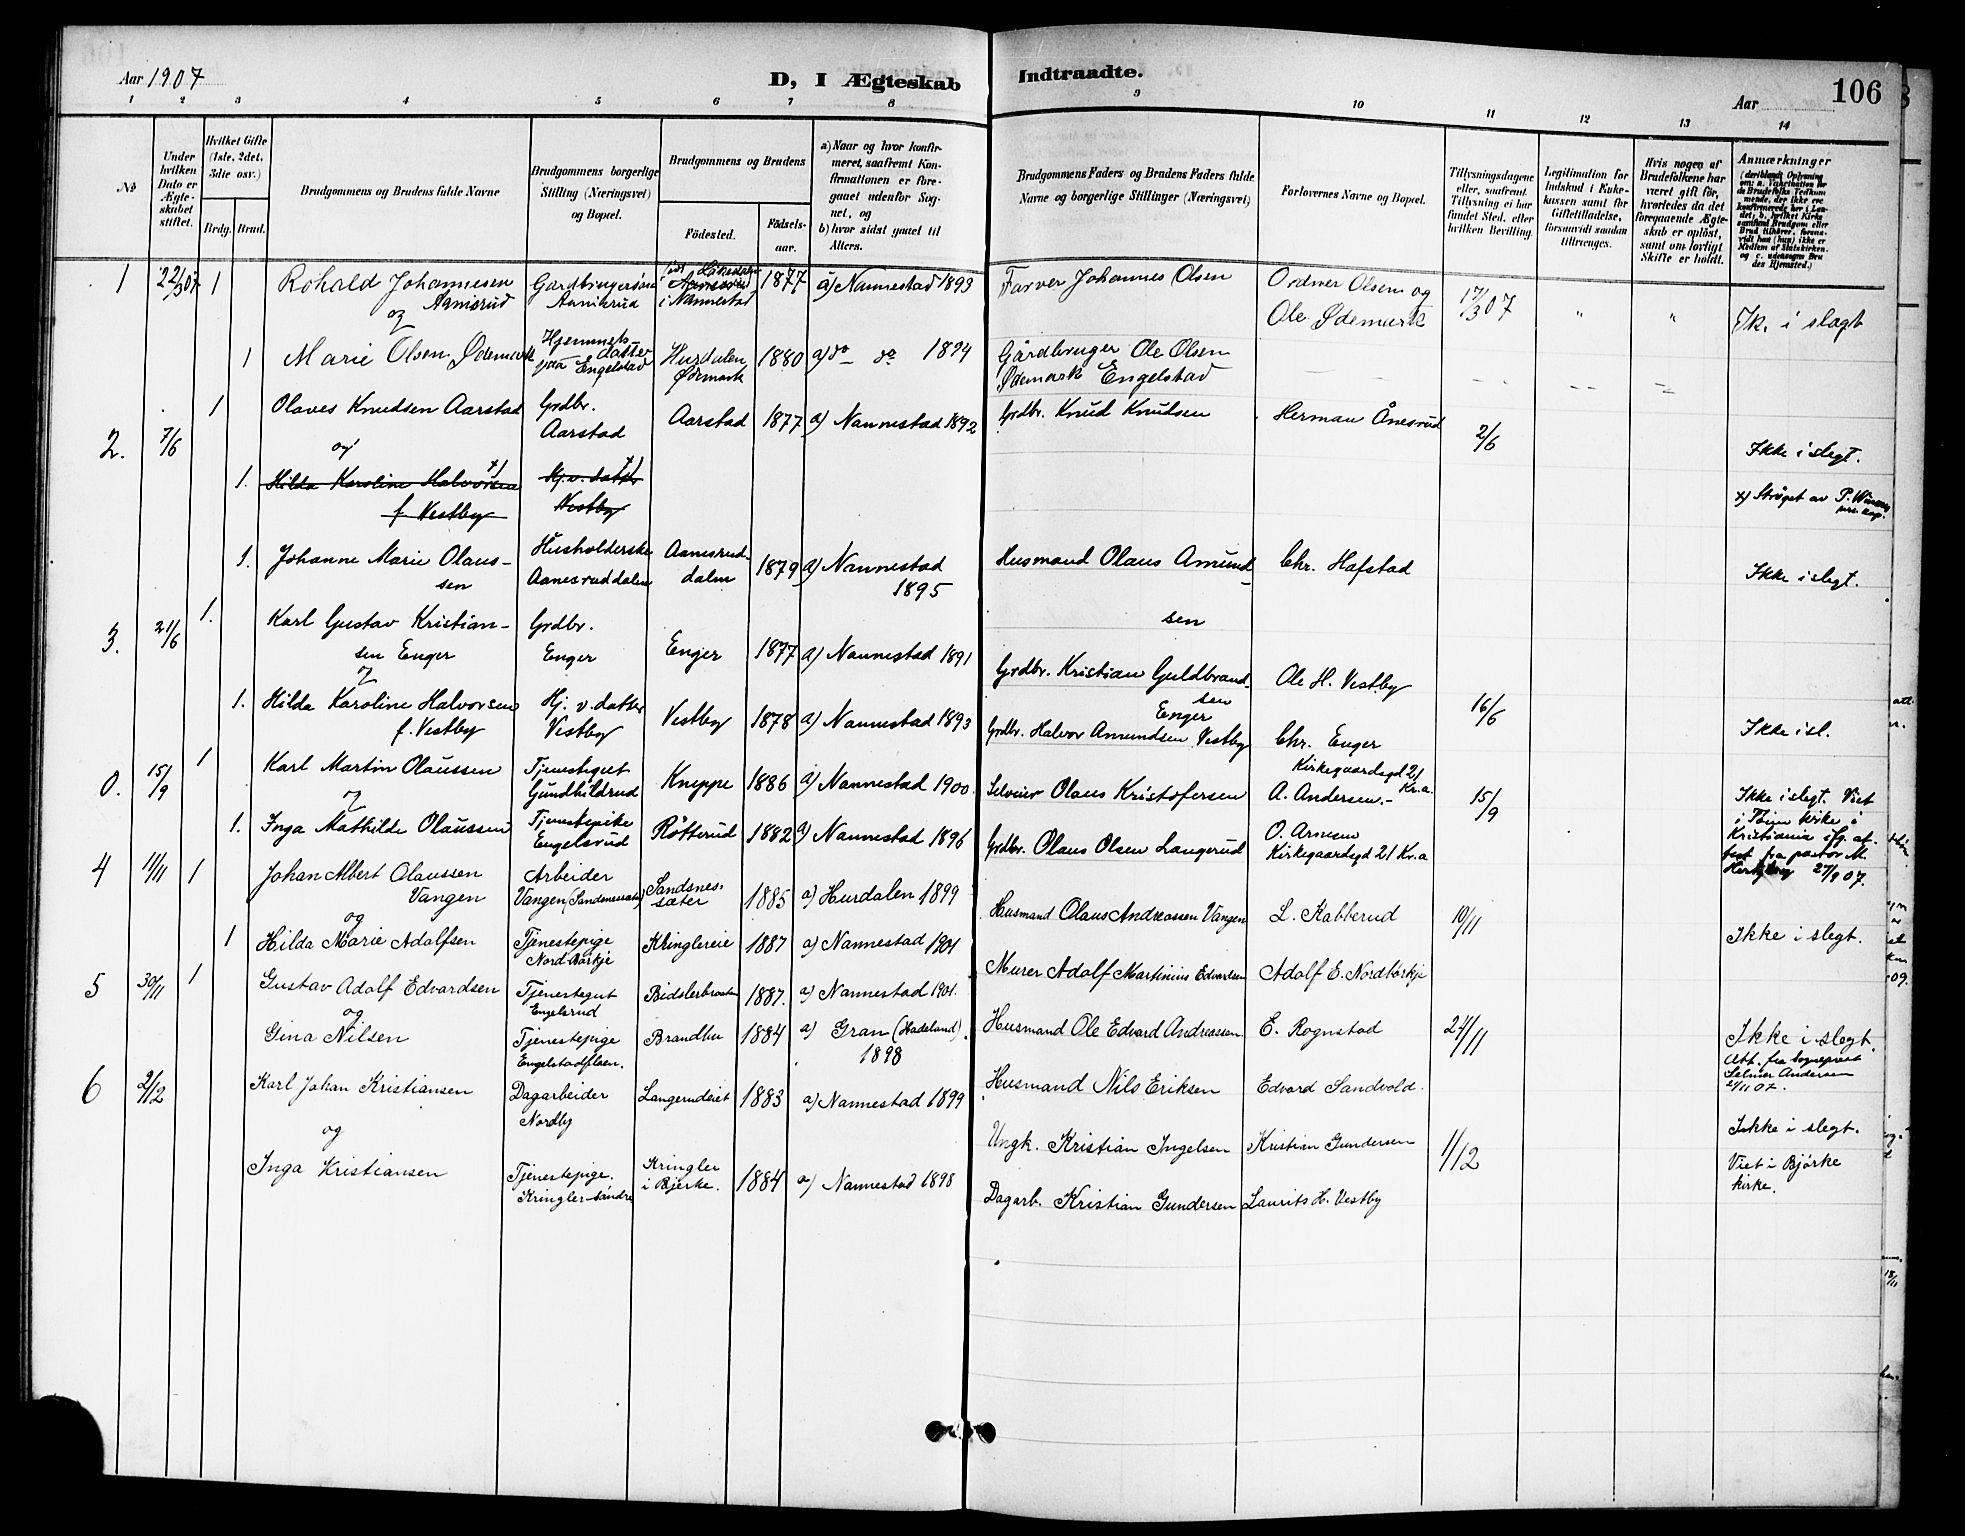 Aar 1907
D, I Ægteskab
Indtraadte.
Aar
106
1 2 3 4 5 6 7 8 9 10 11 12 13 14
No
Under hvilken Dato er Ægteskabet stiftet.
Hvilket Gifte (1ste, 2det, 3die osv.)
Brdg. Brud.
Brudgommens og Brudens fulde Navne
Brudgommens borgerlige Stilling (Næringsvei) og Bopæl.
Brudgommens og Brudens
Fødested.
Fødselsaar.
a) Naar og hvor konfirmeret, saafremt Konfirmationen er foregaaet udenfor Sognet, og
b) hvor sidst gaaet til Alters.
Brudgommens Faders og Brudens Faders fulde Navne og borgerlige Stillinger (Næringsvei)
Forlovernes Navne og Bopæl.
Tillysningsdagene eller, saafremt Tillysning ei har fundet Sted, efter hvilken Bevilling.
Legitimation for Indskud i Enkekassen samt for Giftetilladelse, forsaavidt saadan tiltrænges.
Hvis nogen af Brudefolkene har været gift før, hvorledes da det foregaaende Ægteskab er opløst, samt om lovligt Skifte er holdt.
Anmærkninger
1 22/3 07 1 Rohald Johannesen Aanisrud Gardbrugersøn Aanisrud i Nannestad 1877 a) Nannestad 1893 Farver Johannes Olsen Ordner Olsen og Ole Ødemark 17/3 07 " " Ik. i slagt
og
1 Marie Olsen Ødemark Hjemmets datter paa Engelstad Hurdalen Ødemark 1880 a) do do 1894 Gårdbruger Ole Olsen Ødemark Engelstad
2. 7/6 1 Olaves Knudsen Aarstad Grdbr. Aarstad Aarstad 1877 a) Nannestad 1892 Grdbr. Knud Knudsen Herman Ånesrud 2/6 Ikke i slegt.
og
1. Hilda Karoline Halvorsen x) f. Vestby Hj. v. datter x) Vestby x) Strøget av P.
1. Johanne Marie Olaussen Husholderske Aanesruddalen Aanesruddalen 1879 a) Nannestad 1895 Husmand Olaus Amundsen Chr. Hafstad Ikke i slegt.
3. 21/6 1. Karl Gustav Kristiansen Enger Grdbr. Enger Enger 1877 a) Nannestad 1891 Grdbr. Kristian Guldbrandsen Enger Ole H. Vestby 16/6 Ikke i sl.
og
1. Hilda Karoline Halvorsen f. Vestby Hj. v. datter Vestby Vestby 1878 a) Nannestad 1893 Grdbr. Halvor Amundsen Vestby Chr. Enger
0. 15/9 1 Karl Martin Olaussen Tjenestgut Gundhildrud Kneppe 1886 a) Nannestad 1900. Selveier Olaus Kristofersen Kirkegaardsgd 21 Kr.a. A. Andersen.- 15/9 Ikke i slegt. Viet i Tøien kirke i Kristiania ifg. attest fra pastor M. 27/9 07.
og
1. Inga Mathilde Olaussen Tjenestepike Engelsrud Røtterud 1882 a) Nannestad 1896 Grdbr. Olaus Olsen Langerud O. Arnesen Kirkegaardsgd 21 Kr.a
4 11/11 1 Johan Albert Olaussen Vangen Arbeider Vangen (Sandsnessæter) Sandsnessæter 1885 a) Hurdalen 1899 Husmand Olaus Andreassen Vangen L. Kabberud 10/11 Ikke i slegt.
og
1 Hilda Marie Adolfsen Tjenestepige Nord Børkje Kringlereie 1887 a) Nannestad 1901 Murer Adolf Martinius Edvardsen Adolf E. Nordbørkje
5 30/11 1 Gustav Adolf Edvardsen Tjenestegut Engelsrud Bidslerbraaten 1887. a) Nannestad 1901. Husmand Ole Edvard Andreassen E. Rognstad 24/11 Ikke i slegt.
og
Gina Nilsen Tjenestepige Engelstadflaen. Brandbu 1884 a) Gran (Hadeland). 1898 Husmand Nils Eriksen Edvard Sandvold. Att. fra Sogneprest Selmer Andersen 21/11 07.
6 2/12 Karl Johan Kristiansen Dagarbeider Nordby Langerudeiet 1883 a) Nannestad 1899 Ungk. Kristian Ingelsen Kristian Gundersen 1/12 Ikke i slegt.
og
Inga Kristiansen Tjenestepige. Kringler-søndre Kringler i Bjerke. 1884 a) Nannestad 1898 Dagarb. Kristian Gundersen Laurits H. Vestby Viet i Bjørke kirke.